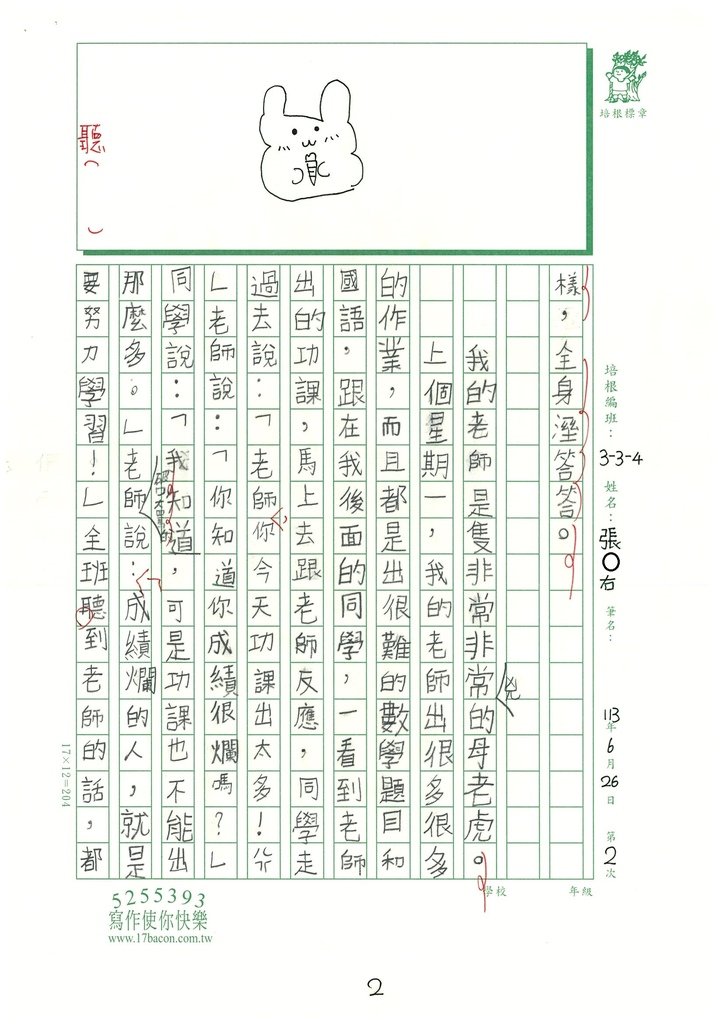 培根標章
培根編班：3-3-4 姓名：張○右 筆名：
113年6月26日 第2次
樣，全身溼答答。
我的老師是隻非常非常兇的母老虎。
上個星期一，我的老師出很多很多
的作業，而且都是出很難的數學題目和
國語，跟在我後面的同學，一看到老師
出的功課，馬上去跟老師反應，同學走
過去說：「老師，你今天功課出太多！
」老師說：「你知道你成績很爛嗎？」
同學說：「我知道，可是功課也不能出
那麼多。」老師說：「成績爛的人，就是
要努力學習！」全班聽到老師的話，都
聽（ ）
學校 年級
17×12=204
5255393
寫作使你快樂
www.17bacon.com.tw
2